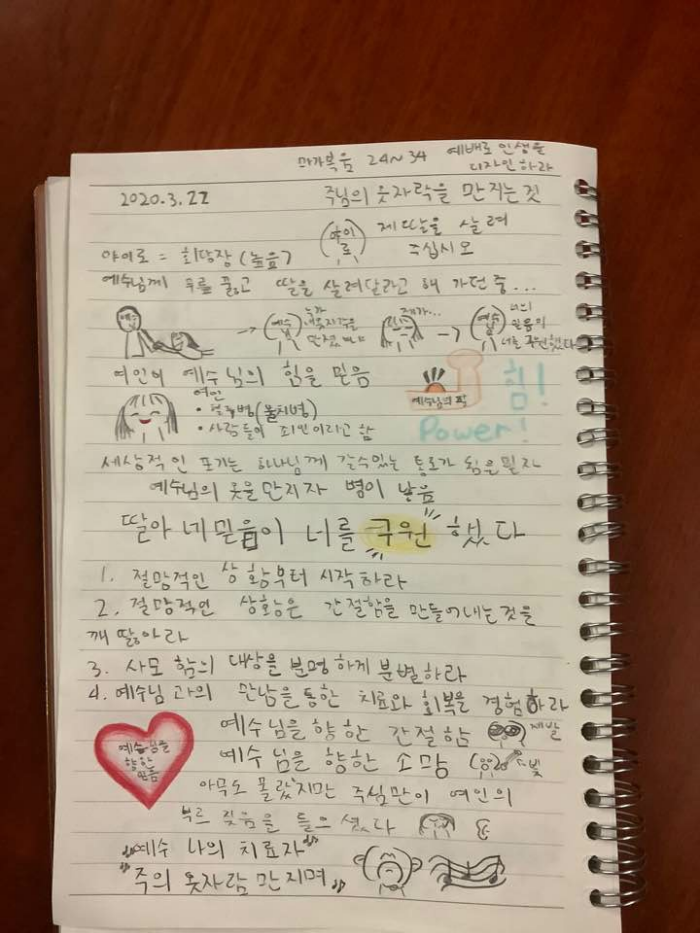 마가복음 24~34 예배로 인생을
디자인하라
2020.3.22 주님의 옷자락을 만지는것
야이로 제 딸을 살려
주십시오
야이로 = 회당장 (높음)
예수님께 무릎 꿇고 딸을 살려달라고 해 가던중...
예수 → 예수 누가 내옷자락을 만졌느냐 제가... → 예수 너의 믿음이 너를 구원했다
여인이 예수님의 힘을 믿음
예수님의 팍 힘!
Power!
여인
• 혈루병(불치병)
• 사람들이 죄인이라고 함
세상적인 포기는 하나님께 갈수있는 통로가 됨을 믿자
예수님의 옷을만지자 병이 낳음
딸아 네믿음이 너를 구원했다
1. 절망적인 상황부터 시작하라
2. 절망적인 상황은 간절함을 만들어내는것을
깨 닳아라
3. 사모 함의 대상을 분명하게 분별하라
4. 예수님과의 만남을 통한 치료와 회복을 경험하라
예수님을 향한 간절함 제발
예수님을 향한 소망 빛
예수님을
향한
믿음
아무도 몰랐지만 주님만이 여인의
부르짖음을 들으셨다
"예수 나의 치료자"
"주의 옷자람 만지며"